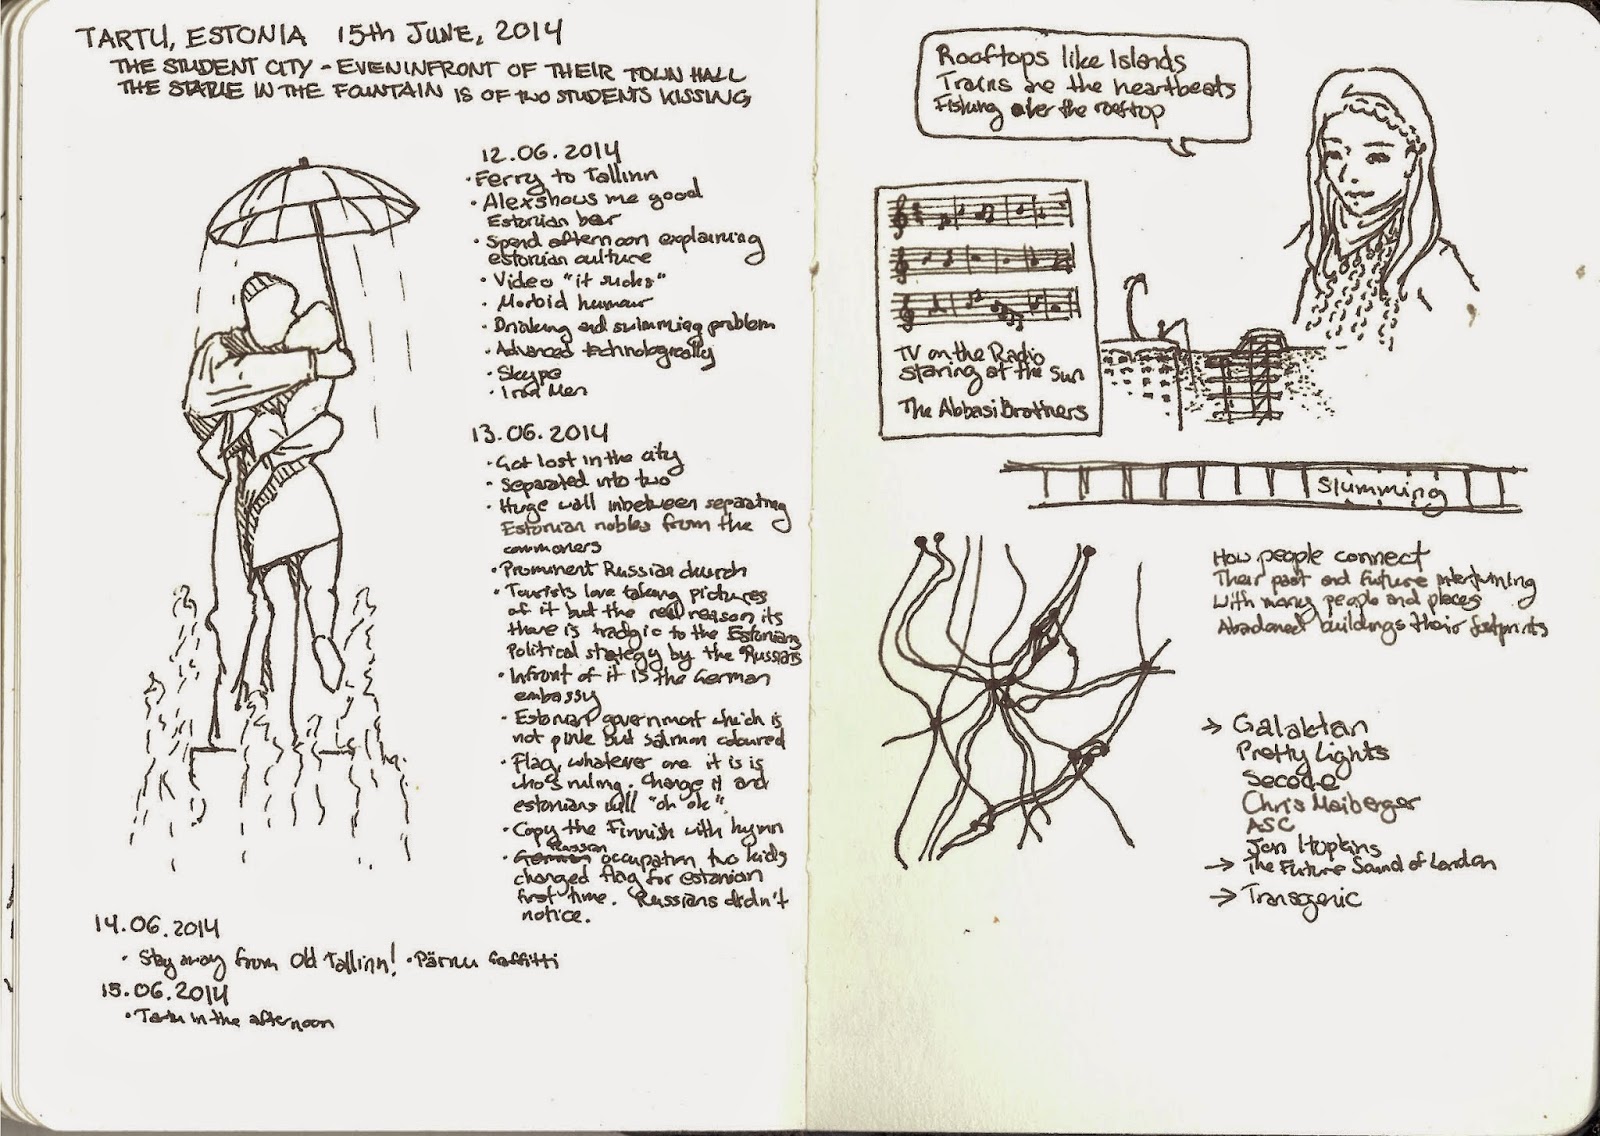 TARTU, ESTONIA 15th JUNE, 2014
THE STUDENT CITY - EVEN INFRONT OF THEIR TOWN HALL
THE STATUE IN THE FOUNTAIN IS OF TWO STUDENTS KISSING
12.06.2014
• Ferry to Tallinn
• Alex shows me good
Estonian beer
• Spend afternoon explaining
estonian culture
• Video "it sucks"
• Morbid humour
• Drinking and swimming problem
• Advanced technologically
• Skype
• Iron Men
13.06.2014
• Got lost in the city
• Separated into two
• Huge wall inbetween separating
Estonian nobles from the
commoners
• Prominent Russian church
• Tourists love taking pictures
of it but the real reason its
there is tradgic to the Estonians
Political strategy by the Russians
• Infront of it is the German
embassy
• Estonian government which is
not pink but salmon coloured
• Flag, whatever one it is is
who's ruling. Change it and
estonians will "oh ok".
• Copy the Finnish with hymn
Russian
• German occupation two kids
changed flag for estonian
first time. Russians didn't
notice.
14.06.2014
• Stay away from Old Tallinn! • Pärnu Graffitti
15.06.2014
• Tartu in the afternoon
Rooftops like Islands
Trains are the heartbeats
Fishing over the rooftop
TV on the Radio
staring at the sun
The Abbasi Brothers
Slumming
How people connect
Their past and future intertwining
with many people and places
Abadoned buildings their footprints
→ Galaktan
Pretty Lights
Secede
Chris Meiberger
ASC
Jon Hopkins
→ The Future Sound of London
→ Transgenic